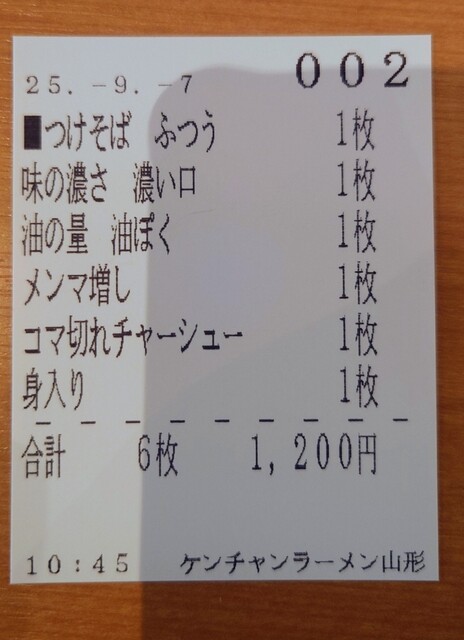 25.-9.-7 002
■つけそば ふつう 1枚
味の濃さ 濃い口 1枚
油の量 油ぽく 1枚
メンマ増し 1枚
コマ切れチャーシュー 1枚
身入り 1枚
合計 6枚 1,200円
10:45 ケンチャンラーメン山形